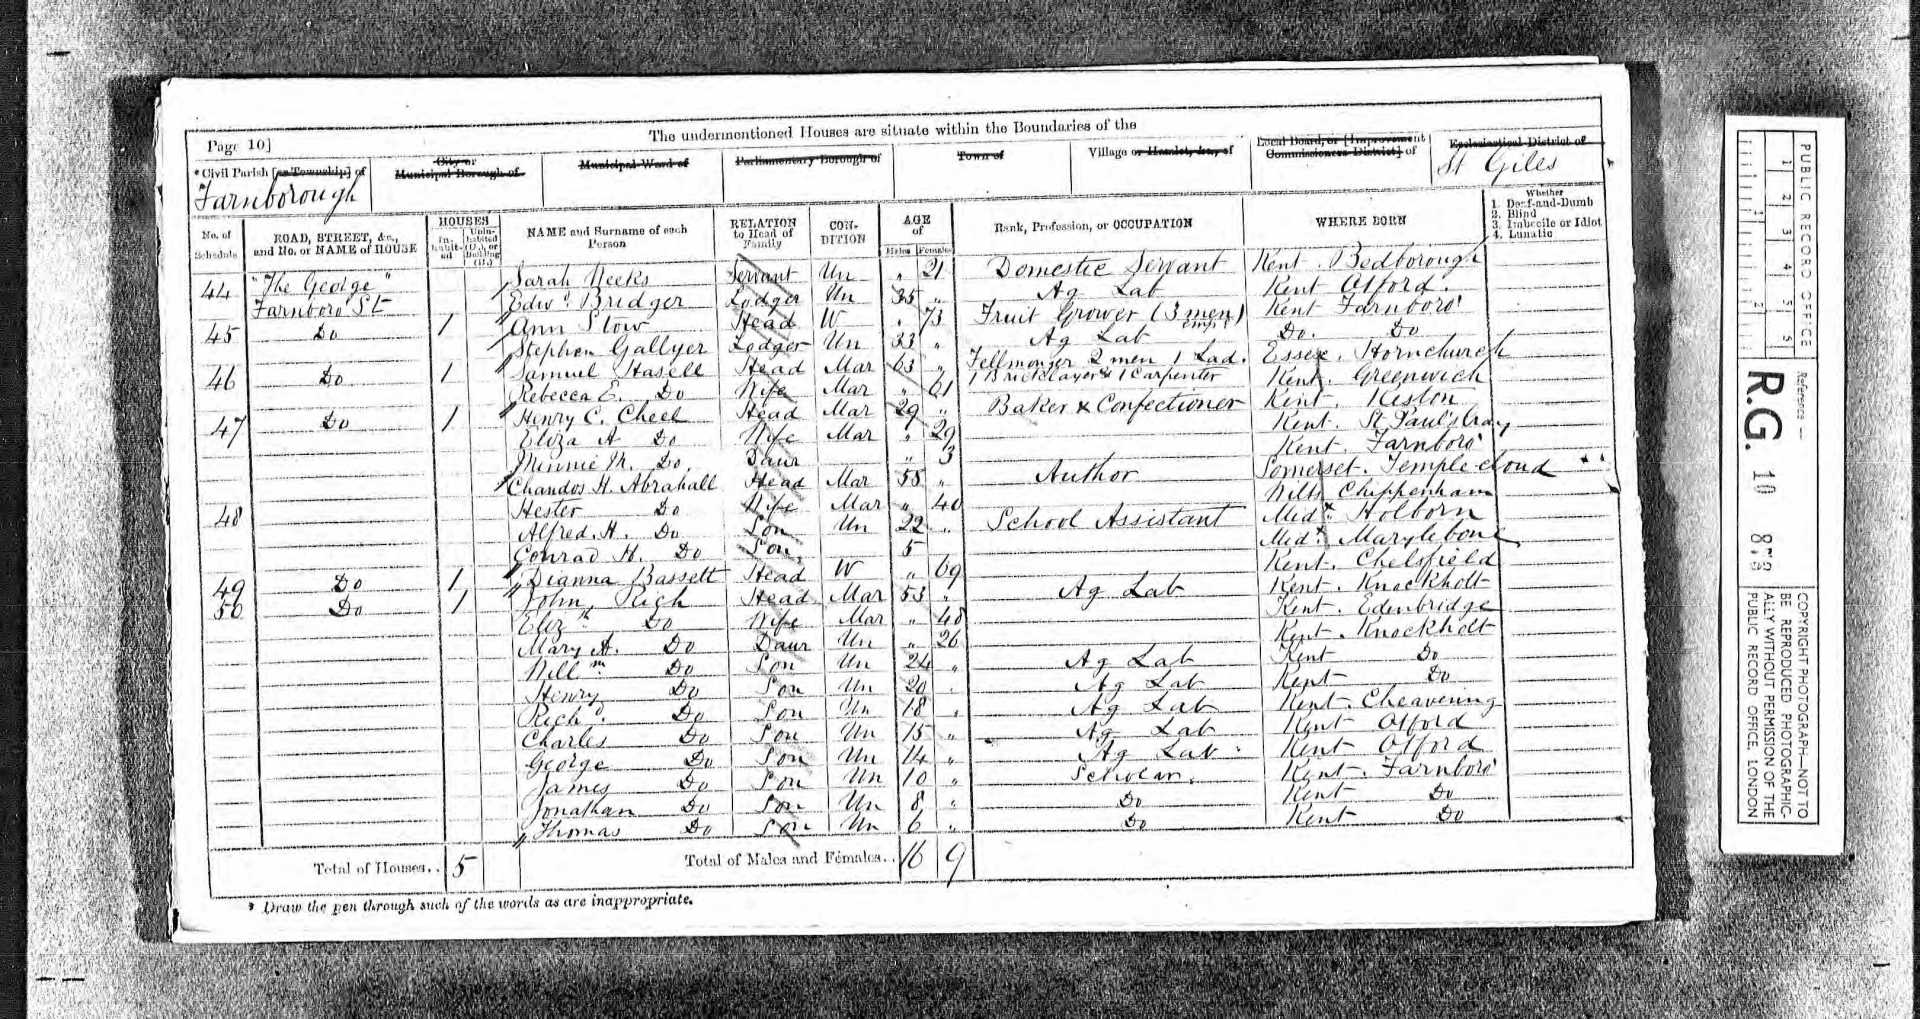 Page 10]
The undermentioned Houses are situate within the Boundaries of the
*Civil Parish [or Township] of
City or Municipal Borough of
Municipal Ward of
Parliamentary Borough of
Town of
Village or Hamlet, &c., of
Local Board, or [Improvement Commissioners District] of
Ecclesiastical District of
Farnborough
St Giles
No. of Schedule
ROAD, STREET, &c., and No. or NAME of HOUSE
HOUSES
In-habit-ed
Unin-habited (U.), or Building (B.)
NAME and Surname of each Person
RELATION to Head of Family
CON-DITION
AGE of
Males
Females
Rank, Profession, or OCCUPATION
WHERE BORN
Whether
1. Deaf-and-Dumb
2. Blind
3. Imbecile or Idiot
4. Lunatic
"The George" Sarah Weeks Servant Un " 21 Domestic Servant Kent. Bedborough
44 Farnboro St Edwd. Bridger Lodger Un 35 " Ag Lab Kent Otford.
45 Do 1 Ann Slow Head W " 73 Fruit Grower (3 men) Kent Farnboro'
Stephen Gallyer Lodger Un 33 " Ag Lab Do. Do
46 Do 1 Samuel Hasell Head Mar 63 " Fellmonger 2 men 1 Lad. Essex. Hornchurch
Rebecca E. Do Wife Mar " 61 1 Bricklayer & 1 Carpenter Kent. Greenwich
47 Do 1 Henry C. Cheel Head Mar 29 " Baker & Confectioner Kent. Keston
Eliza A Do Wife Mar " 29 Kent. St Paul's Cray
Minnie M. Do Daur " 3 Kent. Farnboro'
Chandos H. Abrahall Head Mar 55 " Author Somerset. Temple cloud
48 Hester Do Wife Mar " 40 Wilts Chippenham
Alfred. H. Do Son Un 22 " School Assistant Midx. Holborn
Conrad H. Do Son 5 Midx. Marylebone
49 Do 1 Dianna Bassett Head W " 69 Kent. Chelsfield
50 Do 1 John Rich Head Mar 53 " Ag Lab Kent. Knockholt
Elizth Do Wife Mar " 48 Kent. Edenbridge
Mary A. Do Daur Un " 26 Kent. Knockholt
Willm Do Son Un 24 " Ag Lab Kent Do
Henry Do Son Un 20 " Ag Lab Kent Do
Richd. Do Son Un 18 " Ag Lab Kent. Cheavening
Charles Do Son Un 15 " Ag Lab Kent Otford
George Do Son Un 14 " Ag Lab Kent Otford
James Do Son Un 10 " Scholar. Kent. Farnboro'
Jonathan Do Son Un 8 " Do Kent Do
Thomas Do Son Un 6 " Do Kent Do
Total of Houses.. 5
Total of Males and Females.. 16 9
* Draw the pen through such of the words as are inappropriate.
PUBLIC RECORD OFFICE
1 2 3 4 5
1 2
Reference:—
R.G. 10 873
COPYRIGHT PHOTOGRAPH—NOT TO
BE REPRODUCED PHOTOGRAPHIC-
ALLY WITHOUT PERMISSION OF THE
PUBLIC RECORD OFFICE, LONDON